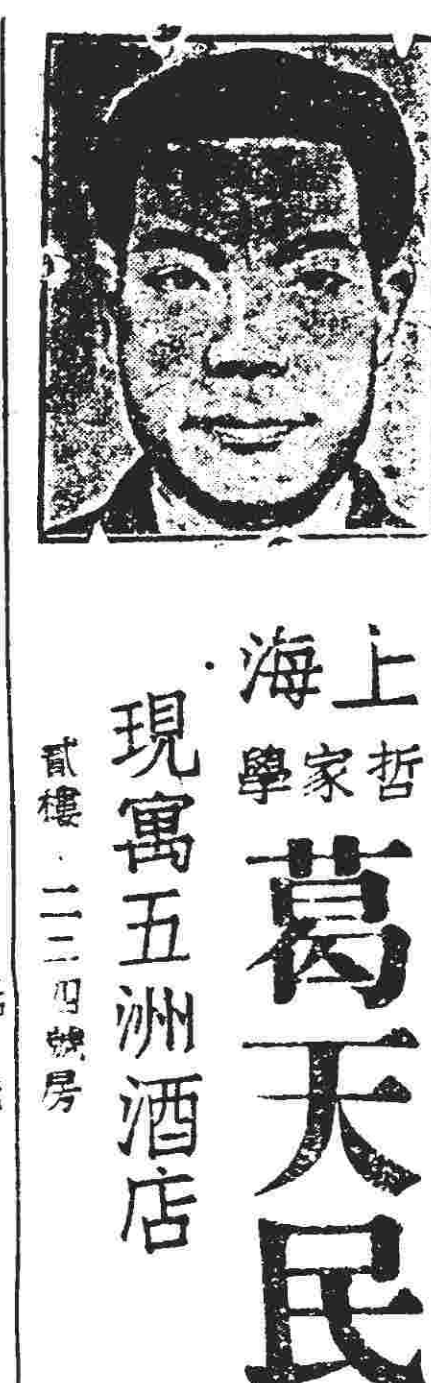 上海
哲家學
葛天民
現寓五洲酒店
貳樓．二二四號房